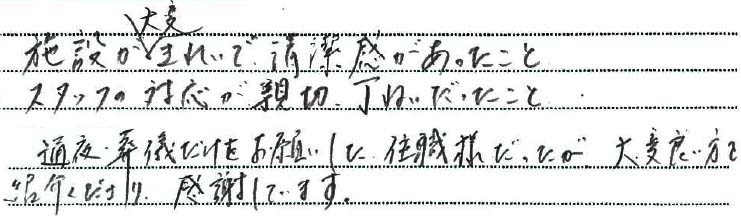 施設が大変きれいで、清潔感があったこと
スタッフの対応が親切、丁ねいだったこと
通夜・葬儀だけをお願いした住職様だったが大変良い方を
紹介くださり、感謝しています。